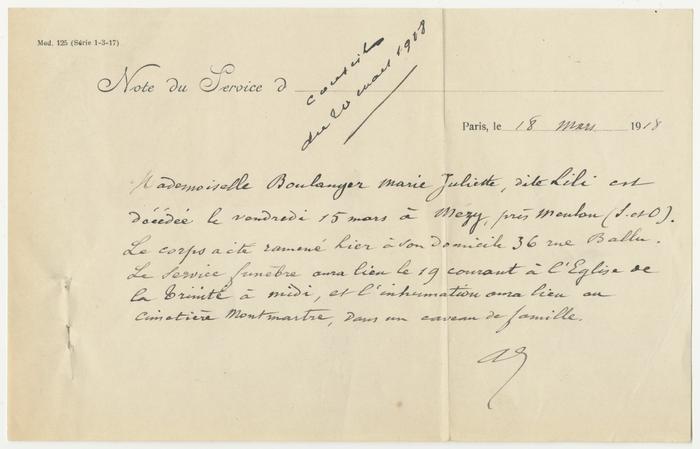 Mod. 125 (Série 1-3-17)
Note du Service d
conseil
du 20 mars 1918
Paris, le 18 mars 1918
Mademoiselle Boulanger Marie Juliette, dite Lili est
décédée le vendredi 15 mars à Mézy, près Meulan (S. et O).
Le corps a été ramené hier à son domicile 36 rue Ballu.
Le Service funèbre aura lieu le 19 courant à l'Eglise de
la Trinité à midi, et l'inhumation aura lieu au
cimetière Montmartre, dans un caveau de famille.